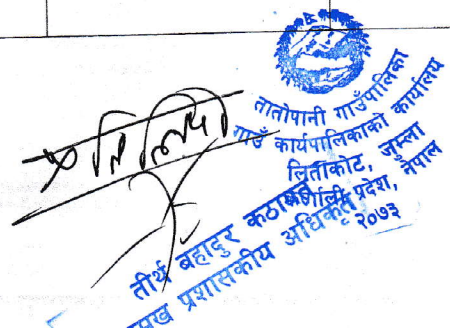 तातोपानी गाउँपालिका
गाउँ कार्यपालिकाको कार्यालय
लिताकोट, जुम्ला
कर्णाली प्रदेश, नेपाल
२०७३
प्रतिलिपी
तीर्थ बहादुर
प्रशासकीय अधिकृत